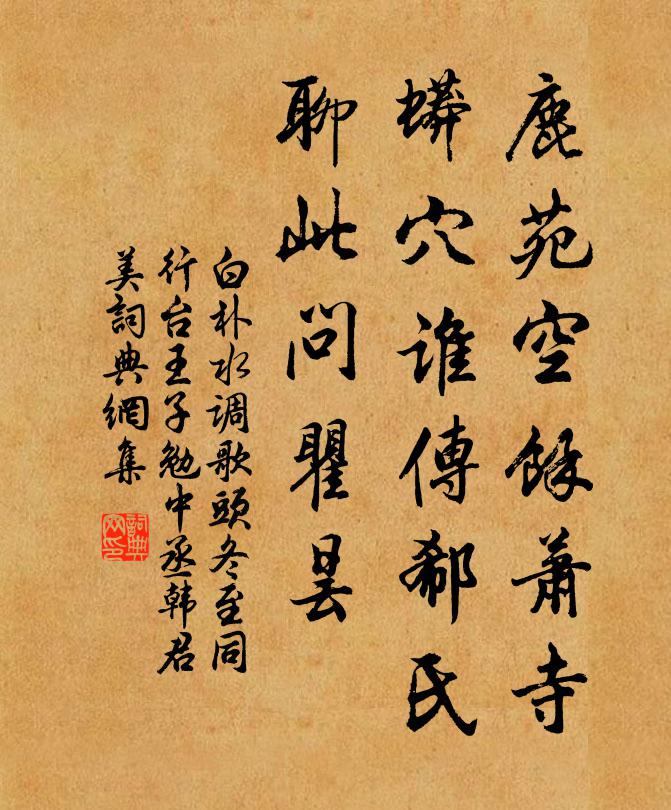 鹿苑空餘蕭寺
蟒穴誰傳郗氏
聊此問瞿曇
白朴水调歌頭冬至同
行台王子勉中丞韩君
美詞典網集
詞典網印